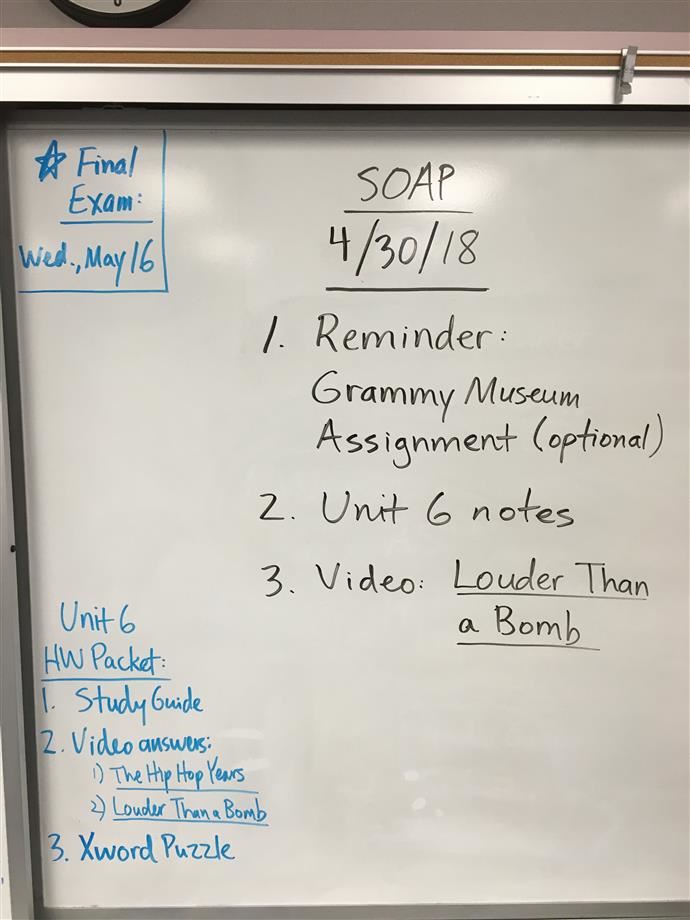 ☆ Final
Exam:
Wed., May 16
SOAP
4/30/18
1. Reminder:
Grammy Museum
Assignment (optional)
2. Unit 6 notes
3. Video: Louder Than
a Bomb
Unit 6
HW Packet:
1. Study Guide
2. Video answers:
1) The Hip Hop Years
2) Louder Than a Bomb
3. Xword Puzzle